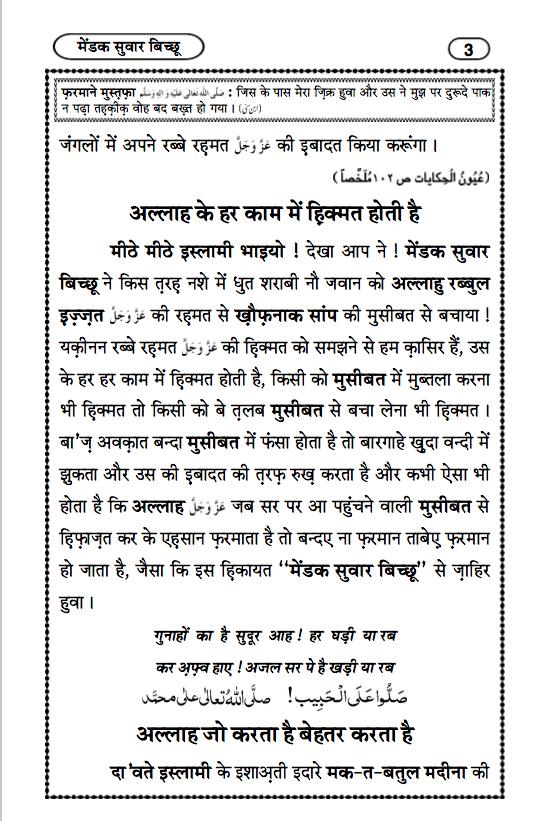 मेंडक सुवार बिच्छू
3
फ़रमाने मुस्त़फ़ा صَلَّى اللهُ تَعَالٰى عَلَيْهِ وَاٰلِهٖ وَسَلَّم : जिस के पास मेरा ज़िक्र हुवा और उस ने मुझ पर दुरूदे पाक
न पढ़ा तहक़ीक़ वोह बद बख़्त हो गया ।
जंगलों में अपने रब्बे रह़मत عَزَّوَجَلَّ की इबादत किया करूंगा ।
(عُیُونُ الْحِکایات ص ١٠٢ مُلَخَّصاً)
अल्लाह के हर काम में ह़िक्मत होती है
मीठे मीठे इस्लामी भाइयो ! देखा आप ने ! मेंडक सुवार
बिच्छू ने किस त़रह़ नशे में धुत शराबी नौ जवान को अल्लाहु रब्बुल
इज़्ज़त عَزَّوَجَلَّ की रह़मत से ख़ौफ़नाक सांप की मुसीबत से बचाया !
यक़ीनन रब्बे रह़मत عَزَّوَجَلَّ की ह़िक्मत को समझने से हम क़ासिर हैं, उस
के हर हर काम में ह़िक्मत होती है, किसी को मुसीबत में मुब्तला करना
भी ह़िक्मत तो किसी को बे त़लब मुसीबत से बचा लेना भी ह़िक्मत ।
बा'ज़ अवक़ात बन्दा मुसीबत में फंसा होता है तो बारगाहे खुदा वन्दी में
झुकता और उस की इबादत की त़रफ़ रुख़ करता है और कभी ऐसा भी
होता है कि अल्लाह عَزَّوَجَلَّ जब सर पर आ पहुंचने वाली मुसीबत से
ह़िफ़ाज़त कर के एह़सान फ़रमाता है तो बन्दए ना फ़रमान ताबेए फ़रमान
हो जाता है, जैसा कि इस ह़िकायत "मेंडक सुवार बिच्छू" से ज़ाहिर
हुवा ।
गुनाहों का है सुदूर आह ! हर घड़ी या रब
कर अ़फ़्व हाए ! अजल सर पे है खड़ी या रब
صَلُّوا عَلَى الْحَبِيب ! صلَّى اللهُ تَعالٰى علٰى محمَّد
अल्लाह जो करता है बेहतर करता है
दा'वते इस्लामी के इशाअ़ती इदारे मक-त-बतुल मदीना की